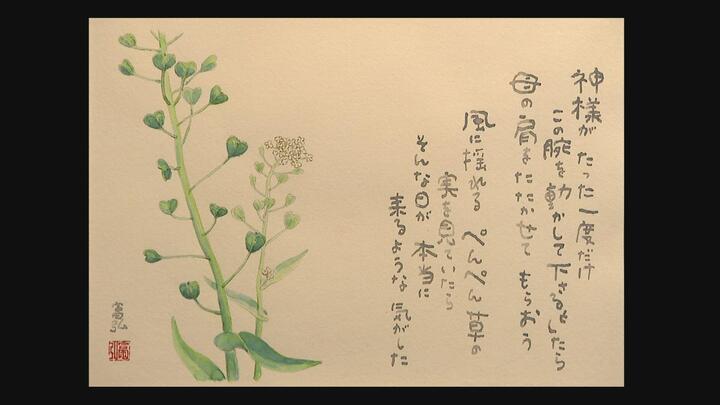 神様がたった一度だけ
この腕を動かして下さるとしたら
母の肩をたたかせてもらおう
風に揺れるぺんぺん草の
実を見ていたら
そんな日が本当に
来るような気がした
富弘